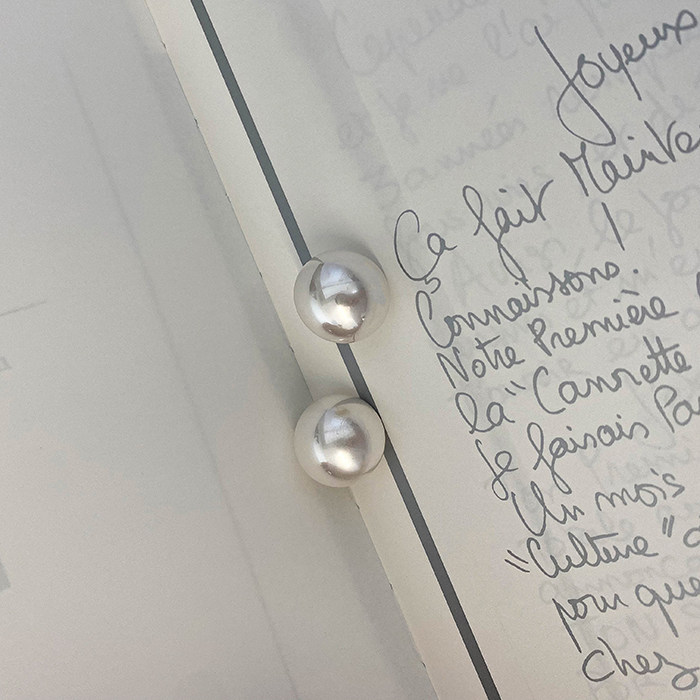 Joyeux
Ça fait Mainte
Connaissons.
Notre Première
la "Cannette
Je faisais Pa
Un mois
"Culture"
pour que
chez